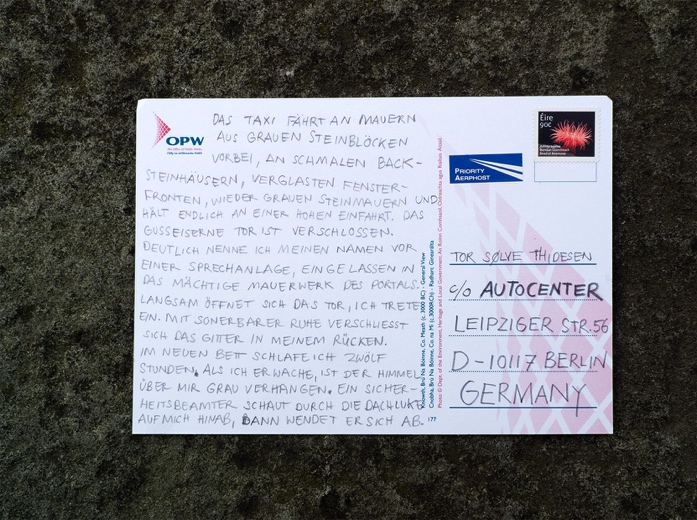 OPW
DAS TAXI FÄHRT AN MAUERN
AUS GRAUEN STEINBLÖCKEN
VORBEI, AN SCHMALEN BACK-
STEINHÄUSERN, VERGLASTEN FENSTER-
FRONTEN, WIEDER GRAUEN STEINMAUERN UND
HÄLT ENDLICH AN EINER HOHEN EINFAHRT. DAS
GUSSEISERNE TOR IST VERSCHLOSSEN.
DEUTLICH NENNE ICH MEINEN NAMEN VOR
EINER SPRECHANLAGE, EINGELASSEN IN
DAS MÄCHTIGE MAUERWERK DES PORTALS.
LANGSAM ÖFFNET SICH DAS TOR, ICH TRETE
EIN. MIT SONERBARER RUHE VERSCHLIESST
SICH DAS GITTER IN MEINEM RÜCKEN.
IM NEUEN BETT SCHLAFE ICH ZWÖLF
STUNDEN. ALS ICH ERWACHE, IST DER HIMMEL
ÜBER MIR GRAU VERHANGEN. EIN SICHER-
HEITSBEAMTER SCHAUT DURCH DIE DACHLUKE
AUF MICH HINAB, DANN WENDET ER SICH AB.
Knowth, Brú Na Bóinne, Co. Meath (c. 3000 BC) - General View
177
Éire
90c
PRIORITY
AERPHOST
TOR SØLVE THIDESEN
c/o AUTOCENTER
LEIPZIGER STR. 56
D-10117 BERLIN
GERMANY